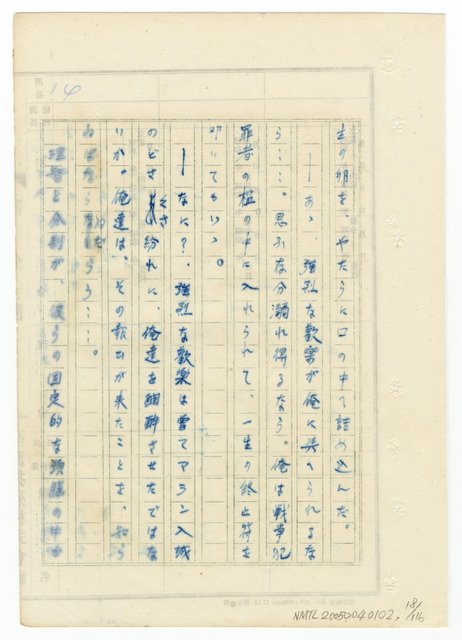 14
生の崩を、やたらに口の中で詰め込んだ。
――あゝ、強烈な歓楽が俺に与へられるな
ら……。思ふ存分溺れ得るなら。俺は戦争犯
罪者の檻の中に入れられて、一生の終止符を
叩いてもいゝ。
――なに?、強烈な歓楽は曽てマラン入城
のどさくさ紛れに、俺達を酩酊させたではな
いか。俺達は、その報ひが来たことを、知ら
ねばならないだらう……。
理智と分別が、彼らの固定的な頭脳の中か
NMTL20050040102, 18/116